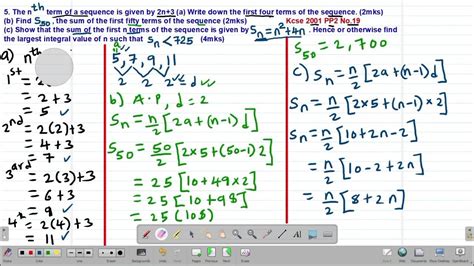 5. The nth term of a sequence is given by 2n+3 (a) Write down the first four terms of the sequence. (2mks)
(b) Find S50, the sum of the first fifty terms of the sequence (2mks) Kcse 2001 PP2 No.19
(c) Show that the sum of the first n terms of the sequence is given by Sn=n²+4n. Hence or otherwise find
the largest integral value of n such that Sn<725 (4mks)
a) nth
1st =
= 2+3
= 5 ✓
2nd = 2(2)+3
= 4+3
= 7 ✓
3rd = 2(3)+3
= 6+3
= 9 ✓
4th = 2(4)+3
= 11 ✓
a
5, 7, 9, 11
2 2 2
b) A.P, d = 2
Sn = n/2 [2a+(n-1)d]
S50 = 50/2 [2×5+(50-1)2]
= 25 [10+49×2]
= 25 [10+98]
= 25 (108)
S50 = 2,700
c) Sn = n/2 [2a+(n-1)d]
Sn = n/2 [2×5+(n-1)×2]
Sn = n/2 [10+2n-2]
= n/2 [10-2+2n]
= n/2 [8+2n]